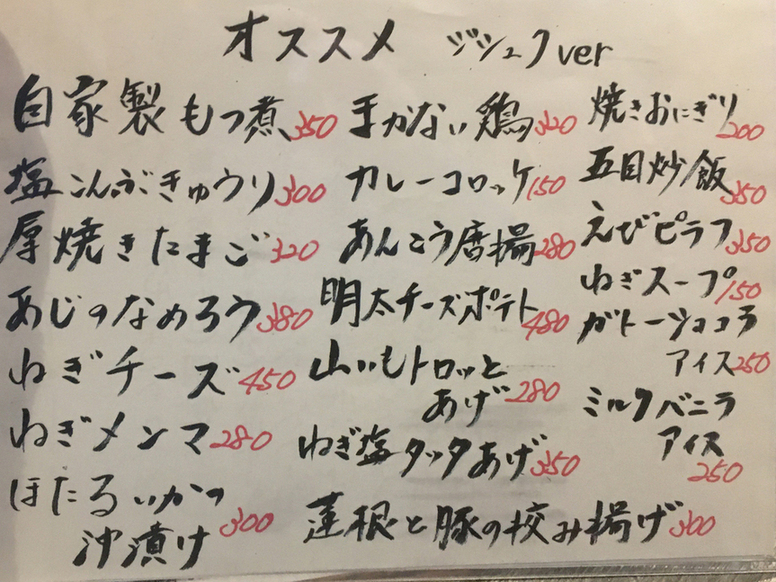 オススメ ジシュクver
自家製もつ煮350
塩こんぶきゅうり300
厚焼きたまご320
あじのなめろう380
ねぎチーズ450
ねぎメンマ280
ほたるいかの
沖漬け300
まかない鶏320
カレーコロッケ150
あんこう唐揚280
明太チーズポテト480
山いもトロッと
あげ280
ねぎ塩タッタあげ350
蓮根と豚の挟み揚げ300
焼きおにぎり200
五目炒飯350
えびピラフ350
ねぎスープ150
ガトーショコラ
アイス250
ミルクバニラ
アイス
250